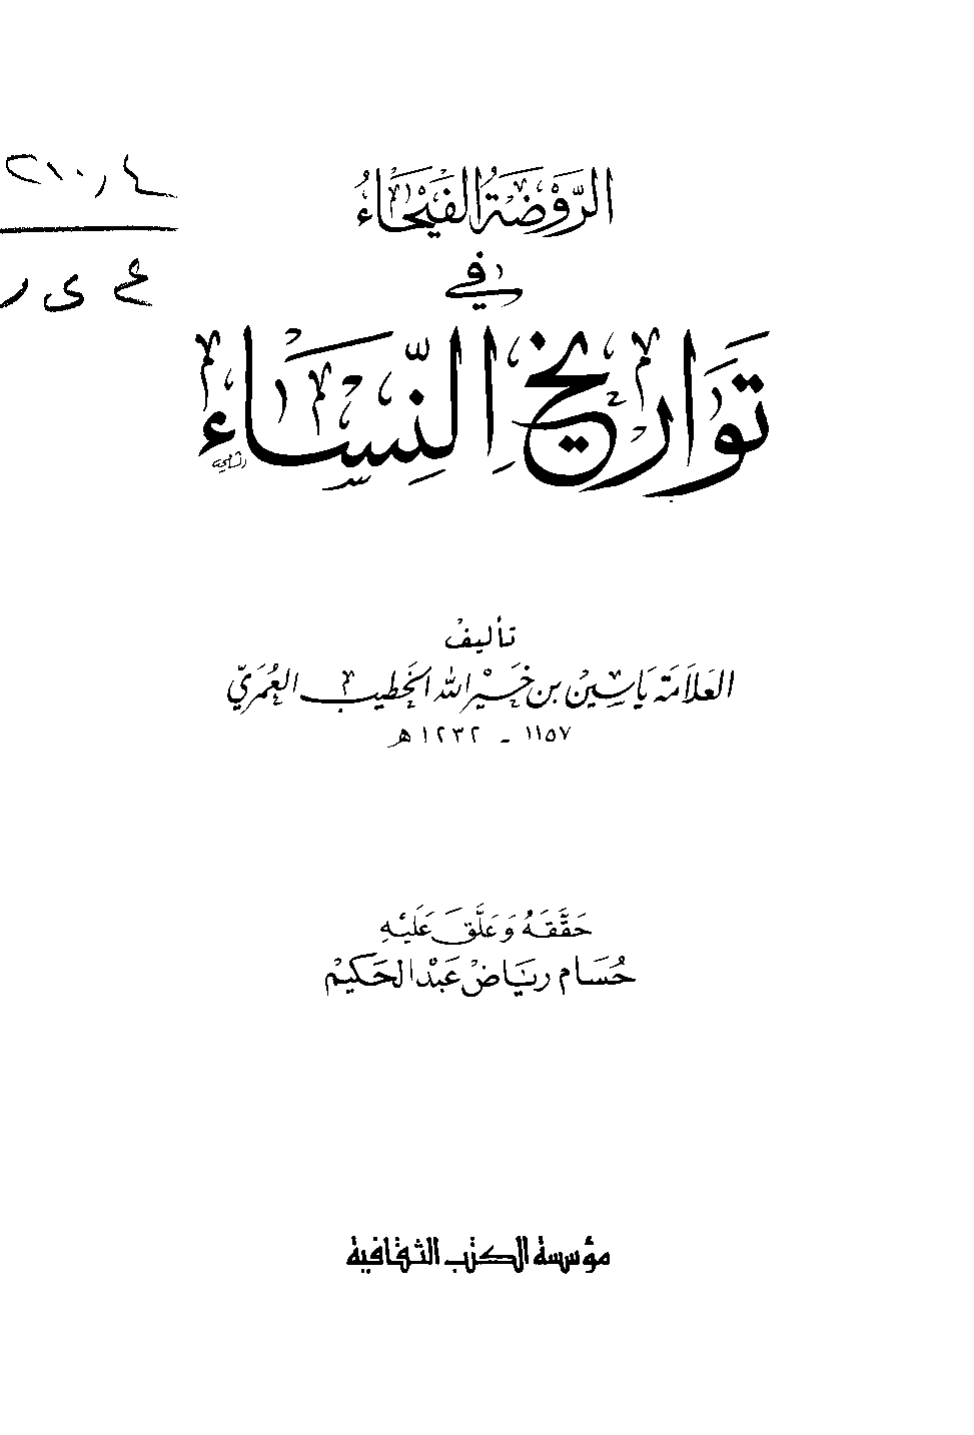 ٢١٠٫٤
ع ى ر
الرَّوْضَةُ الفَيْحَاءُ
في
تَوَارِيخِ النِّسَاءِ
تأليف
العَلاَمَة يَاسِين بن خَيْر الله الخَطيب العُمَريّ
١١٥٧ - ١٢٣٢ هـ
حَقَّقَهُ وَعَلَّقَ عَلَيْهِ
حُسَام ريَاضْ عَبْد الحَكيْم
مؤسسة الكتب الثقافية